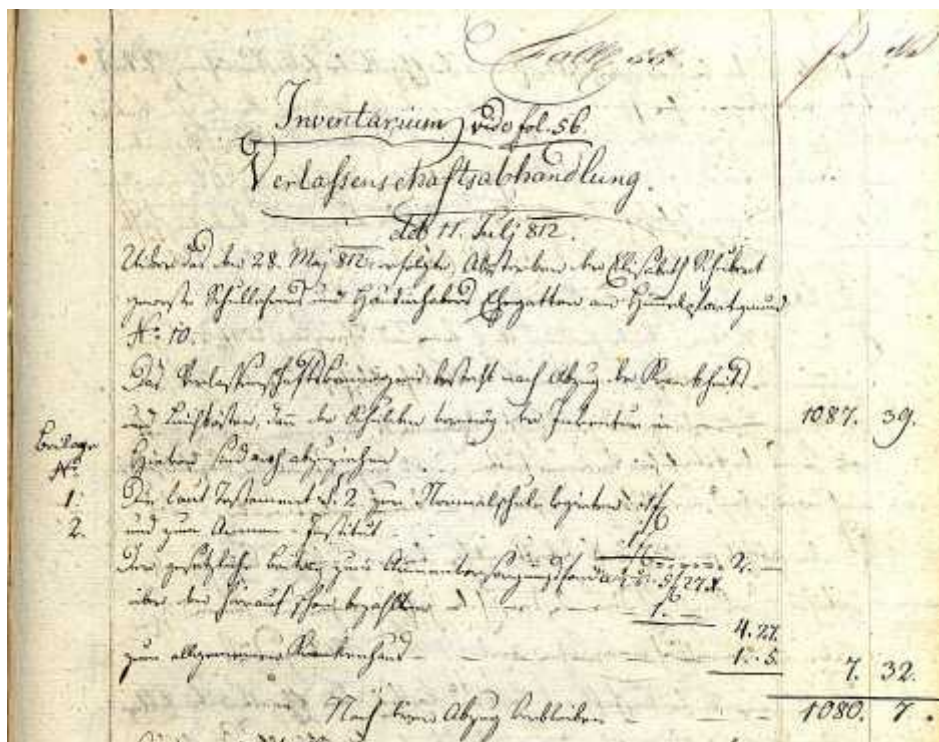 f x
Inventarium vide fol. 56.
Verlassenschaftsabhandlung.
ddo 11. Julj 812.
Ueber das den 28. Maj 812. erfolgte Absterben der Elisabeth Schubert
geweste Schullehrers und Hausinhabers Ehegattin am Himmelpfortgrund
No. 10.
Das Verlassenschaftsvermögen besteht nach Abzug der Krankheits-
und Leichkosten, dann der Schulden vermög der Inventur in 1087. 39.
Beilage Hievon sind noch abzuziehen
No.
1. Die laut Testament §. 2 zum Normalschul legirten 1 f
2. und zum Armen-Institut 1.
2. —
Der gesetzliche Beitrag zum 5 f 27 x
über den hierauf schon bezahlten 1. —
4. 27.
zum allgemeinen Krankenhaus 1. 5. 7. 32.
Nach deren Abzug verbleiben 1080. 7.